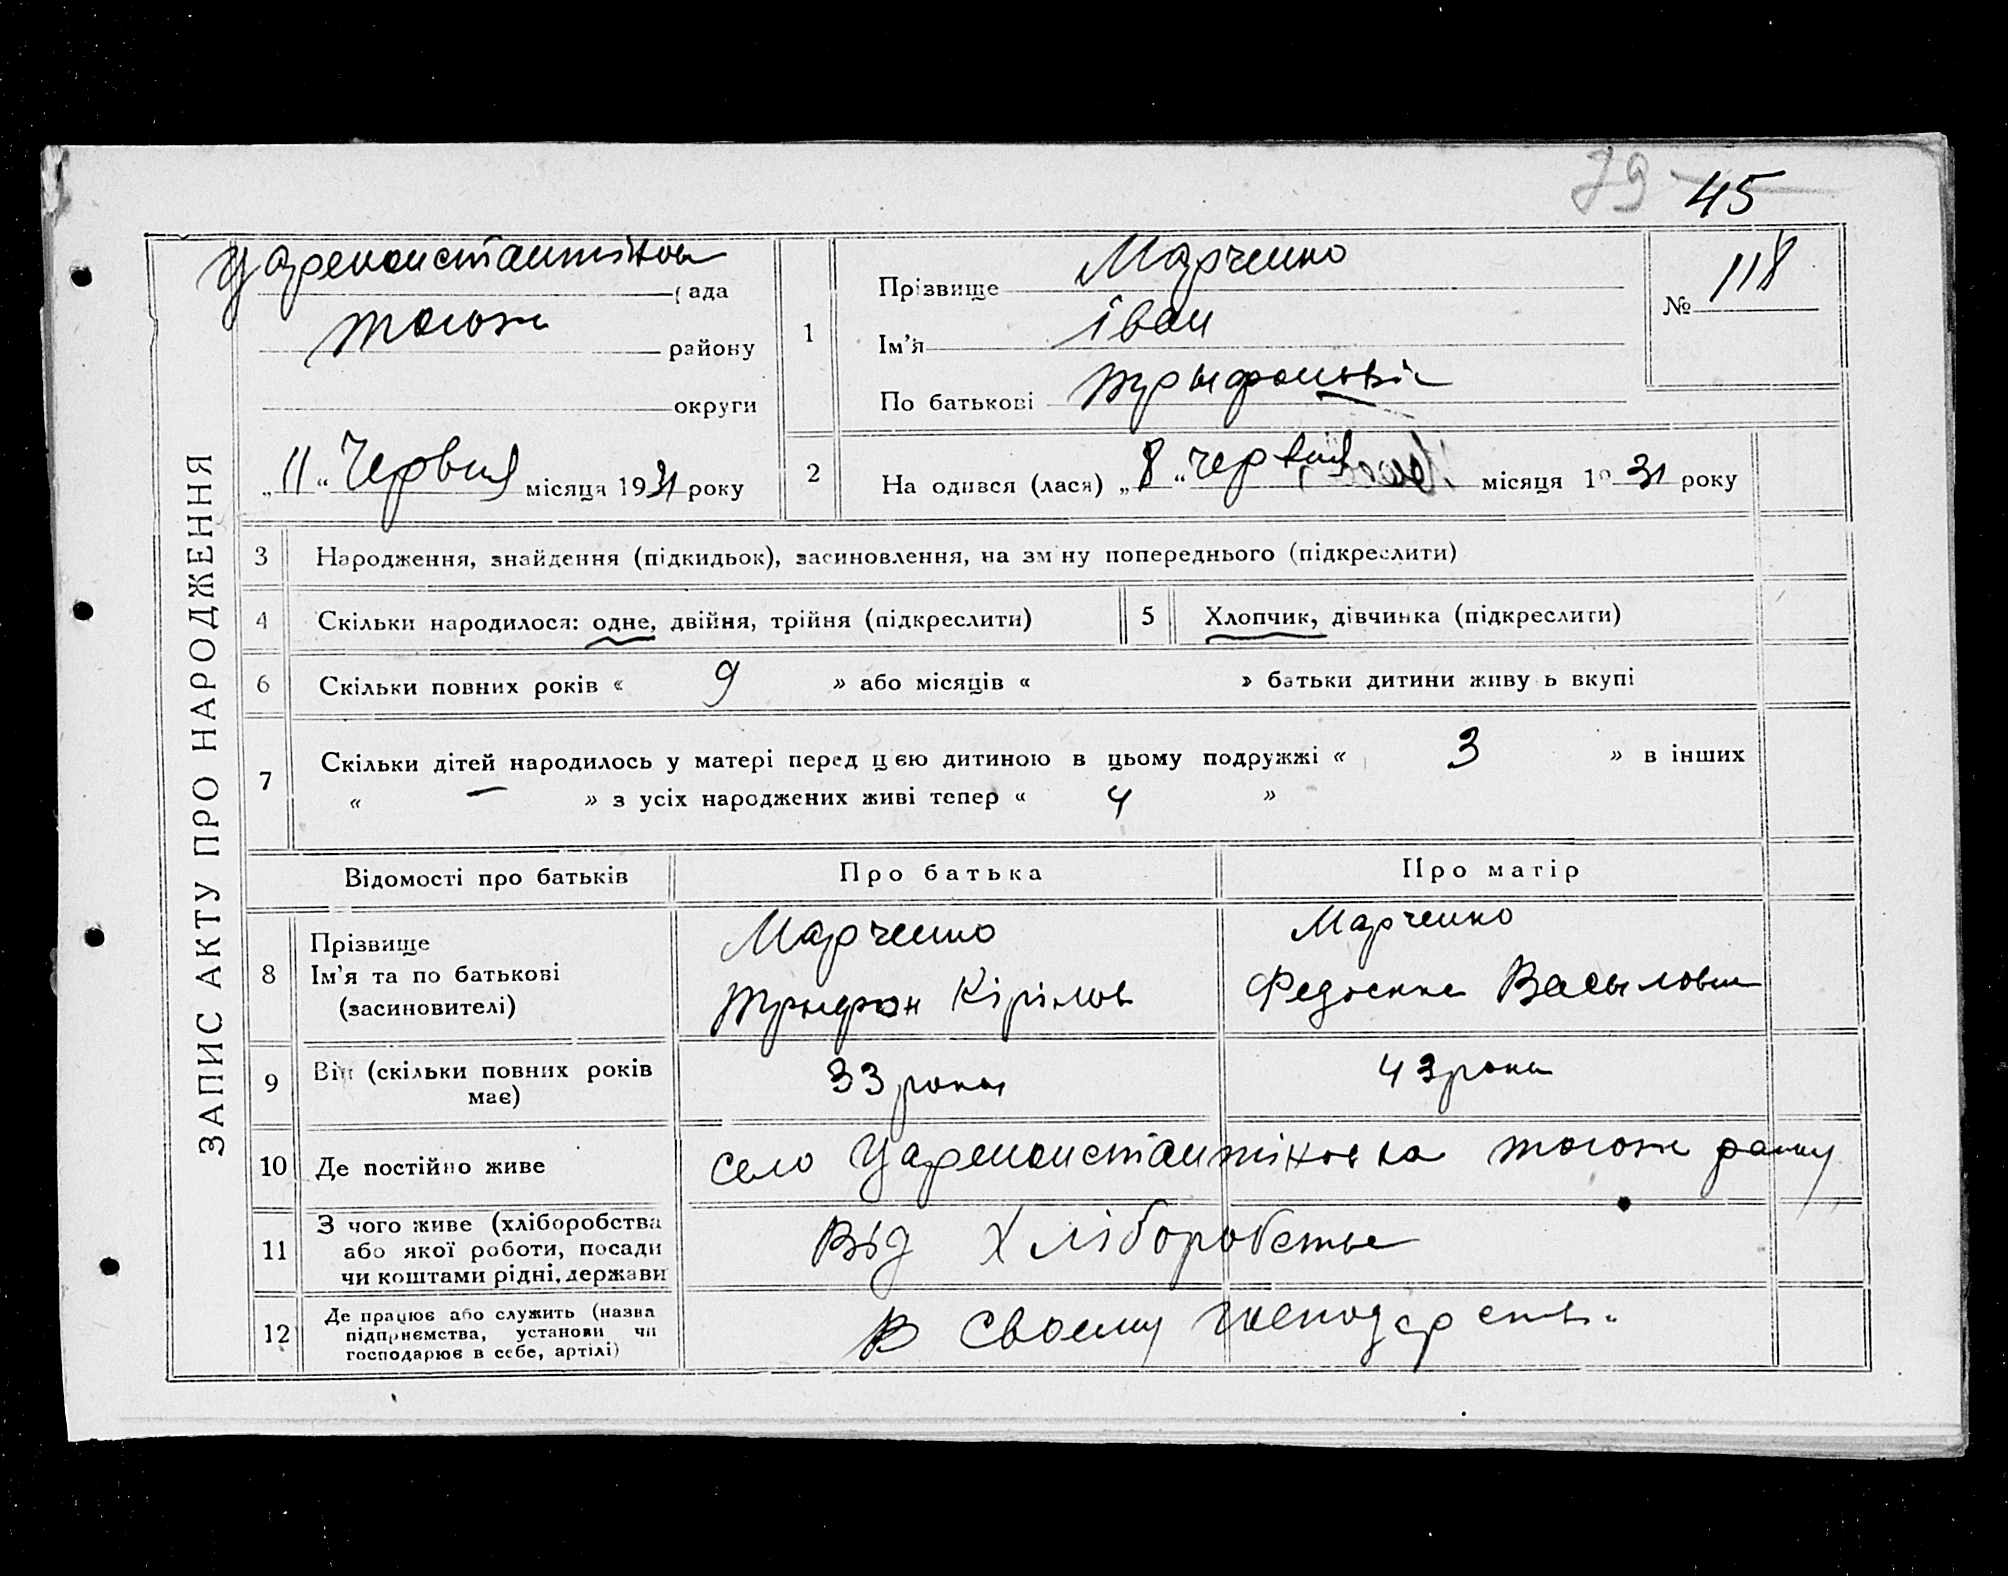 79 45
ЗАПИС АКТУ ПРО НАРОДЖЕННЯ
Цареконстантінов
рада
тогож
району
округи
„11“ Червня місяця 1931 року
1
Прізвище Марченко
Ім'я іван
По батькові Трыфонові
№ 118
2
На одився (лася) „8“ червня місяця 19 31 року
3 Народження, знайдення (підкидьок), засиновлення, на зміну попереднього (підкреслити)
4 Скільки народилося: одне, двійня, трійня (підкреслити) 5 Хлопчик, дівчинка (підкреслити)
6 Скільки повних років « 9 » або місяців « » батьки дитини живу ь вкупі
7 Скільки дітей народилось у матері перед цією дитиною в цьому подружжі « 3 » в інших
« — » з усіх народжених живі тепер « 4 »
Відомості про батьків Про батька Про матір
8 Прізвище
Ім'я та по батькові
(засиновителі)
Марченко
Трыфон Кірілов
Марченко
Васыловна
9 Вік (скільки повних років
має)
33 роки 43 роки
10 Де постійно живе село Цареконстантіновка тогож
11 З чого живе (хліборобства
або якої роботи, посади
чи коштами рідні, держави
Від Хліборобства
12 Де працює або служить (назва
підприємства, установи чи
господарює в себе, артілі)
В своему господарстві.